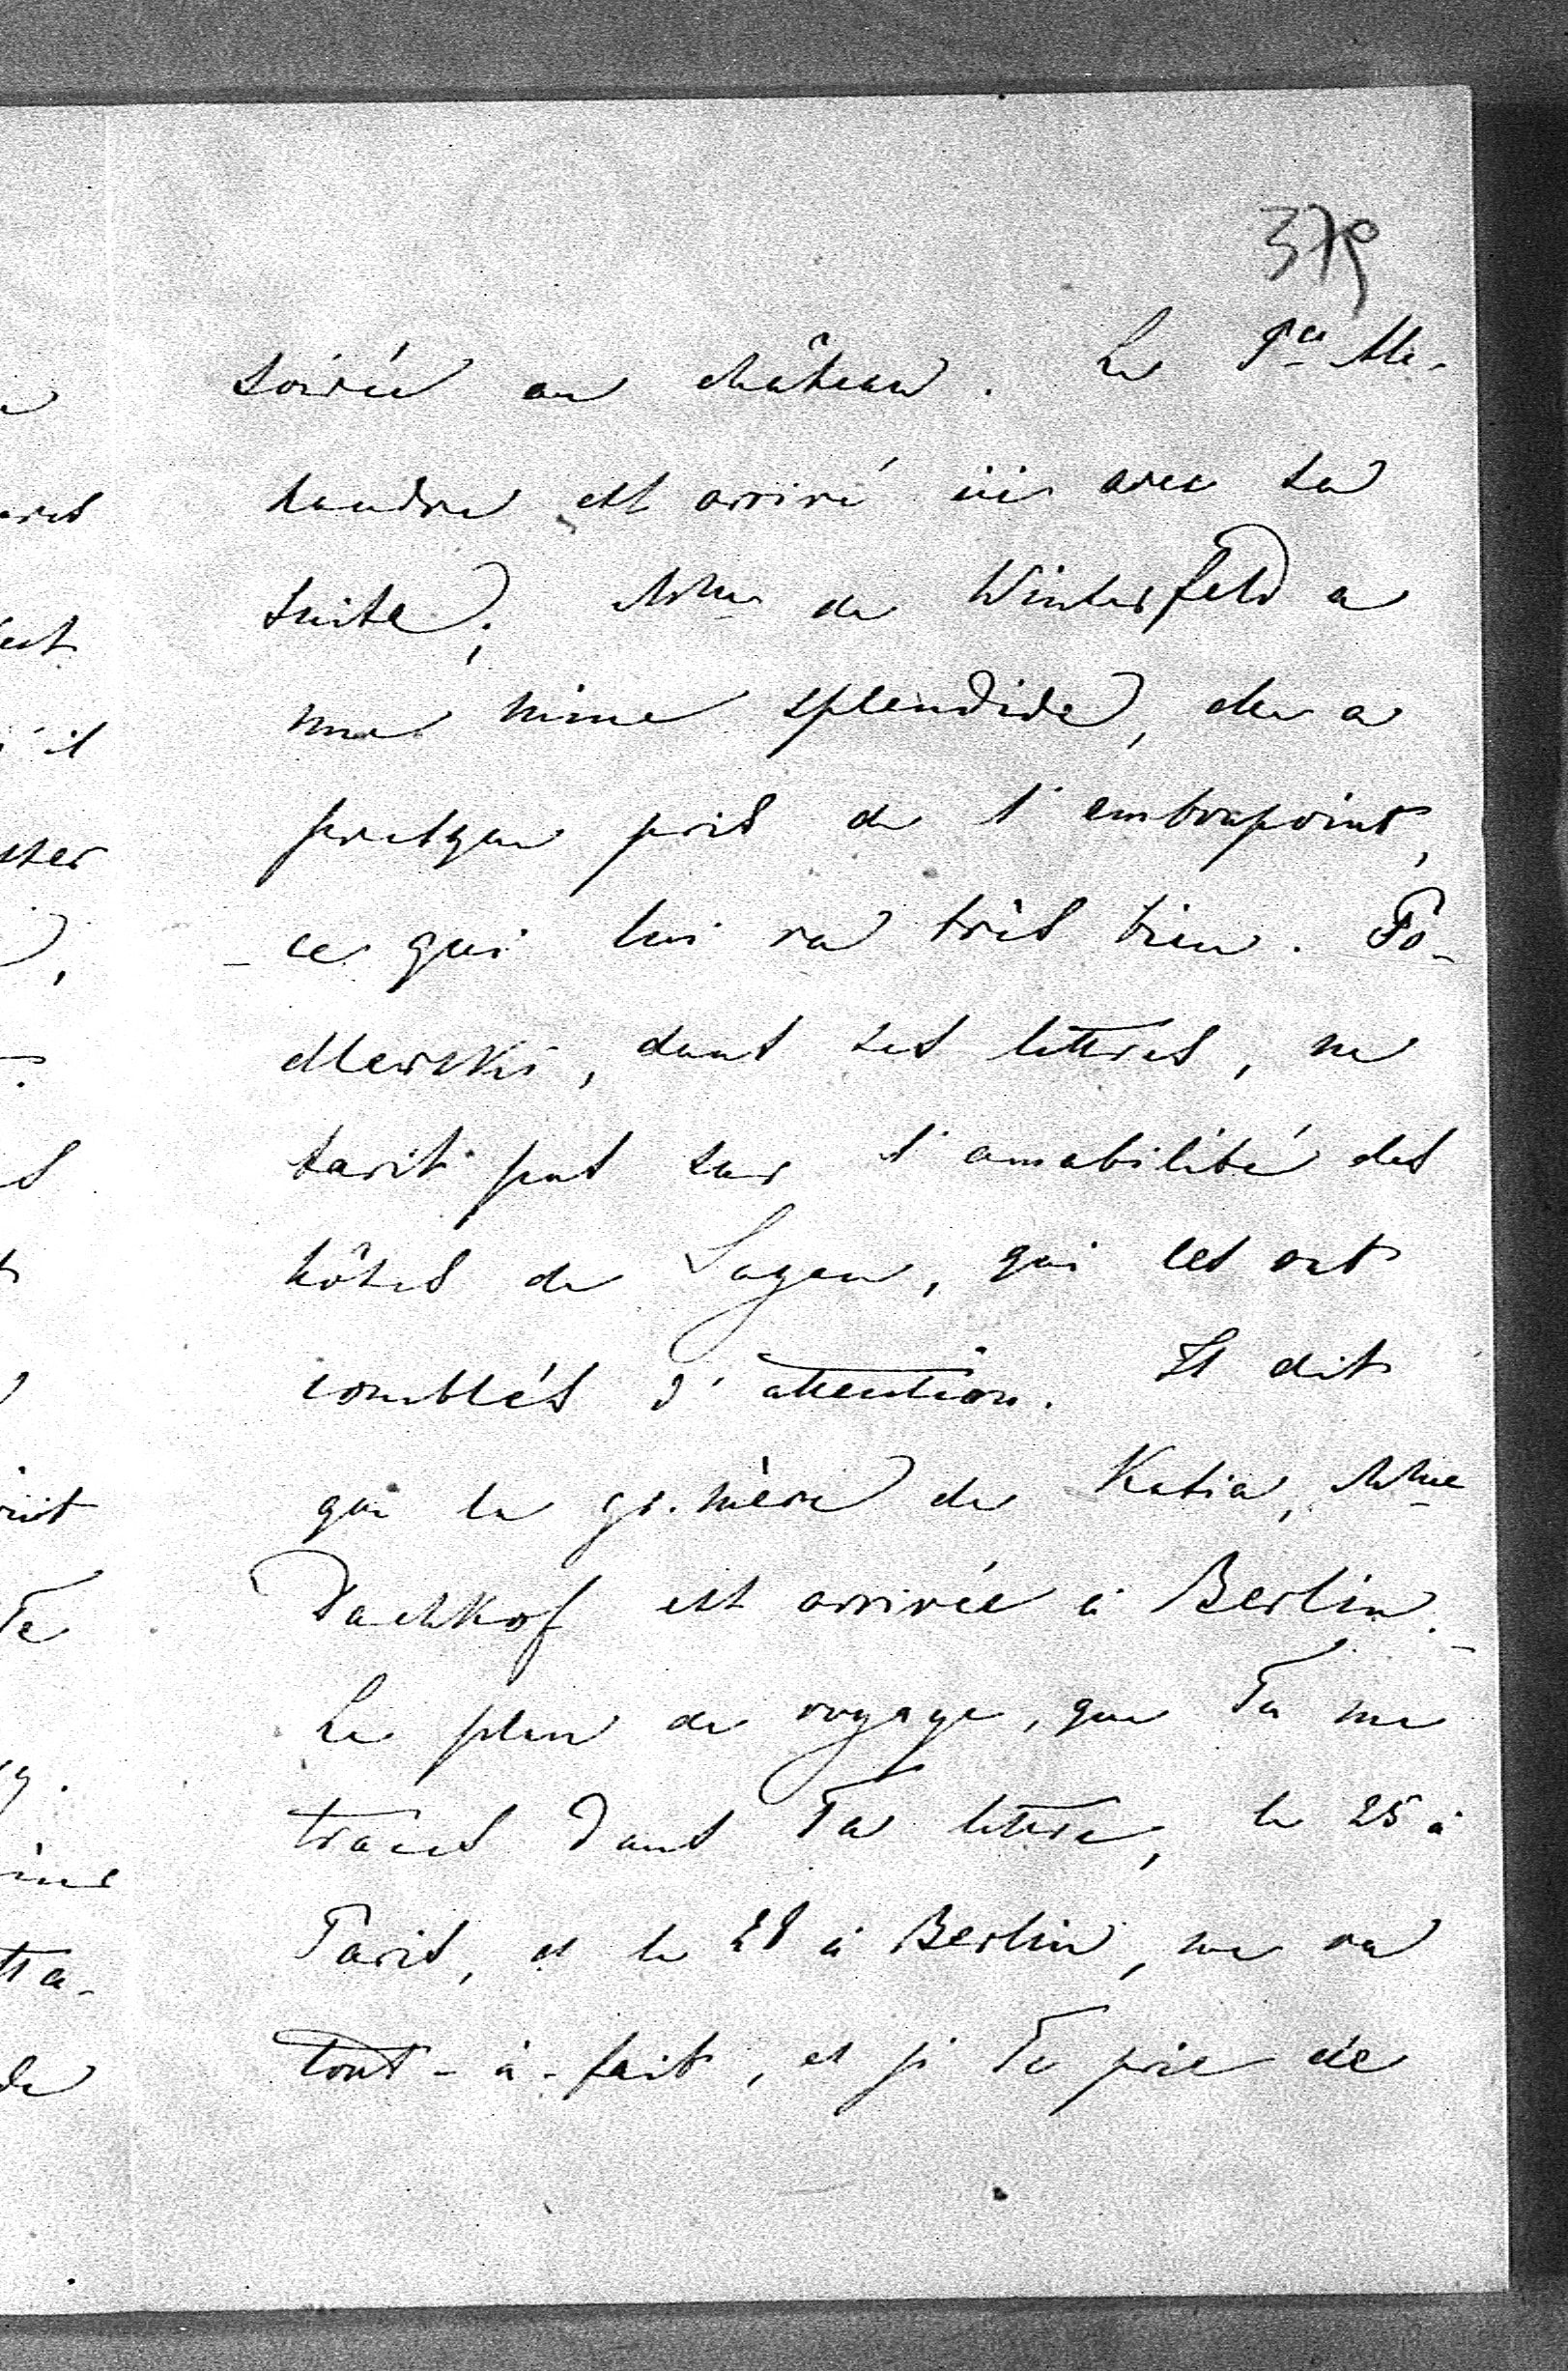 379
soirée au château. Le P^ce Ale-
xandre est arrivé ici avec sa
suite; Mme de Winterfeld a
une mine splendide, elle a
presque pris de l'embonpoint,
ce qui lui va très bien. Po-
dlewski, dans ses lettres, ne
tarit pas sur l'amabilité des
hôtes de Sagan, qui les ont
comblés d'attention. Il dit
que la gr. mère de Katia, Mme
Dachkof est arrivée à Berlin.
Le plan de voyage, que Tu me
traces dans Ta lettre, le 25 à
Paris, et le 28 à Berlin, me va
tout-à-fait, et je Te prie de